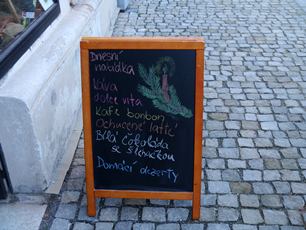 Dnešní
nabídka
Káva
dolce vita
Kafe bonbon
Ochucené latté
Bílá čokoláda
se šlehačkou
Domácí dezerty